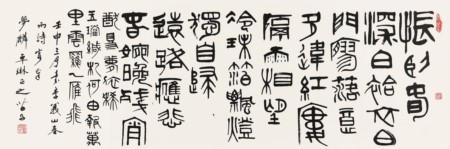 悵卧
白袷衣白
門寥落意
多違紅樓
隔雨相望
冷珠箔飄燈
獨自歸
遠路應悲
春晼晚殘宵
猶得夢依稀
玉璫緘札何由達萬
里雲羅一雁飛
壬申三月書李義山春
雨詩